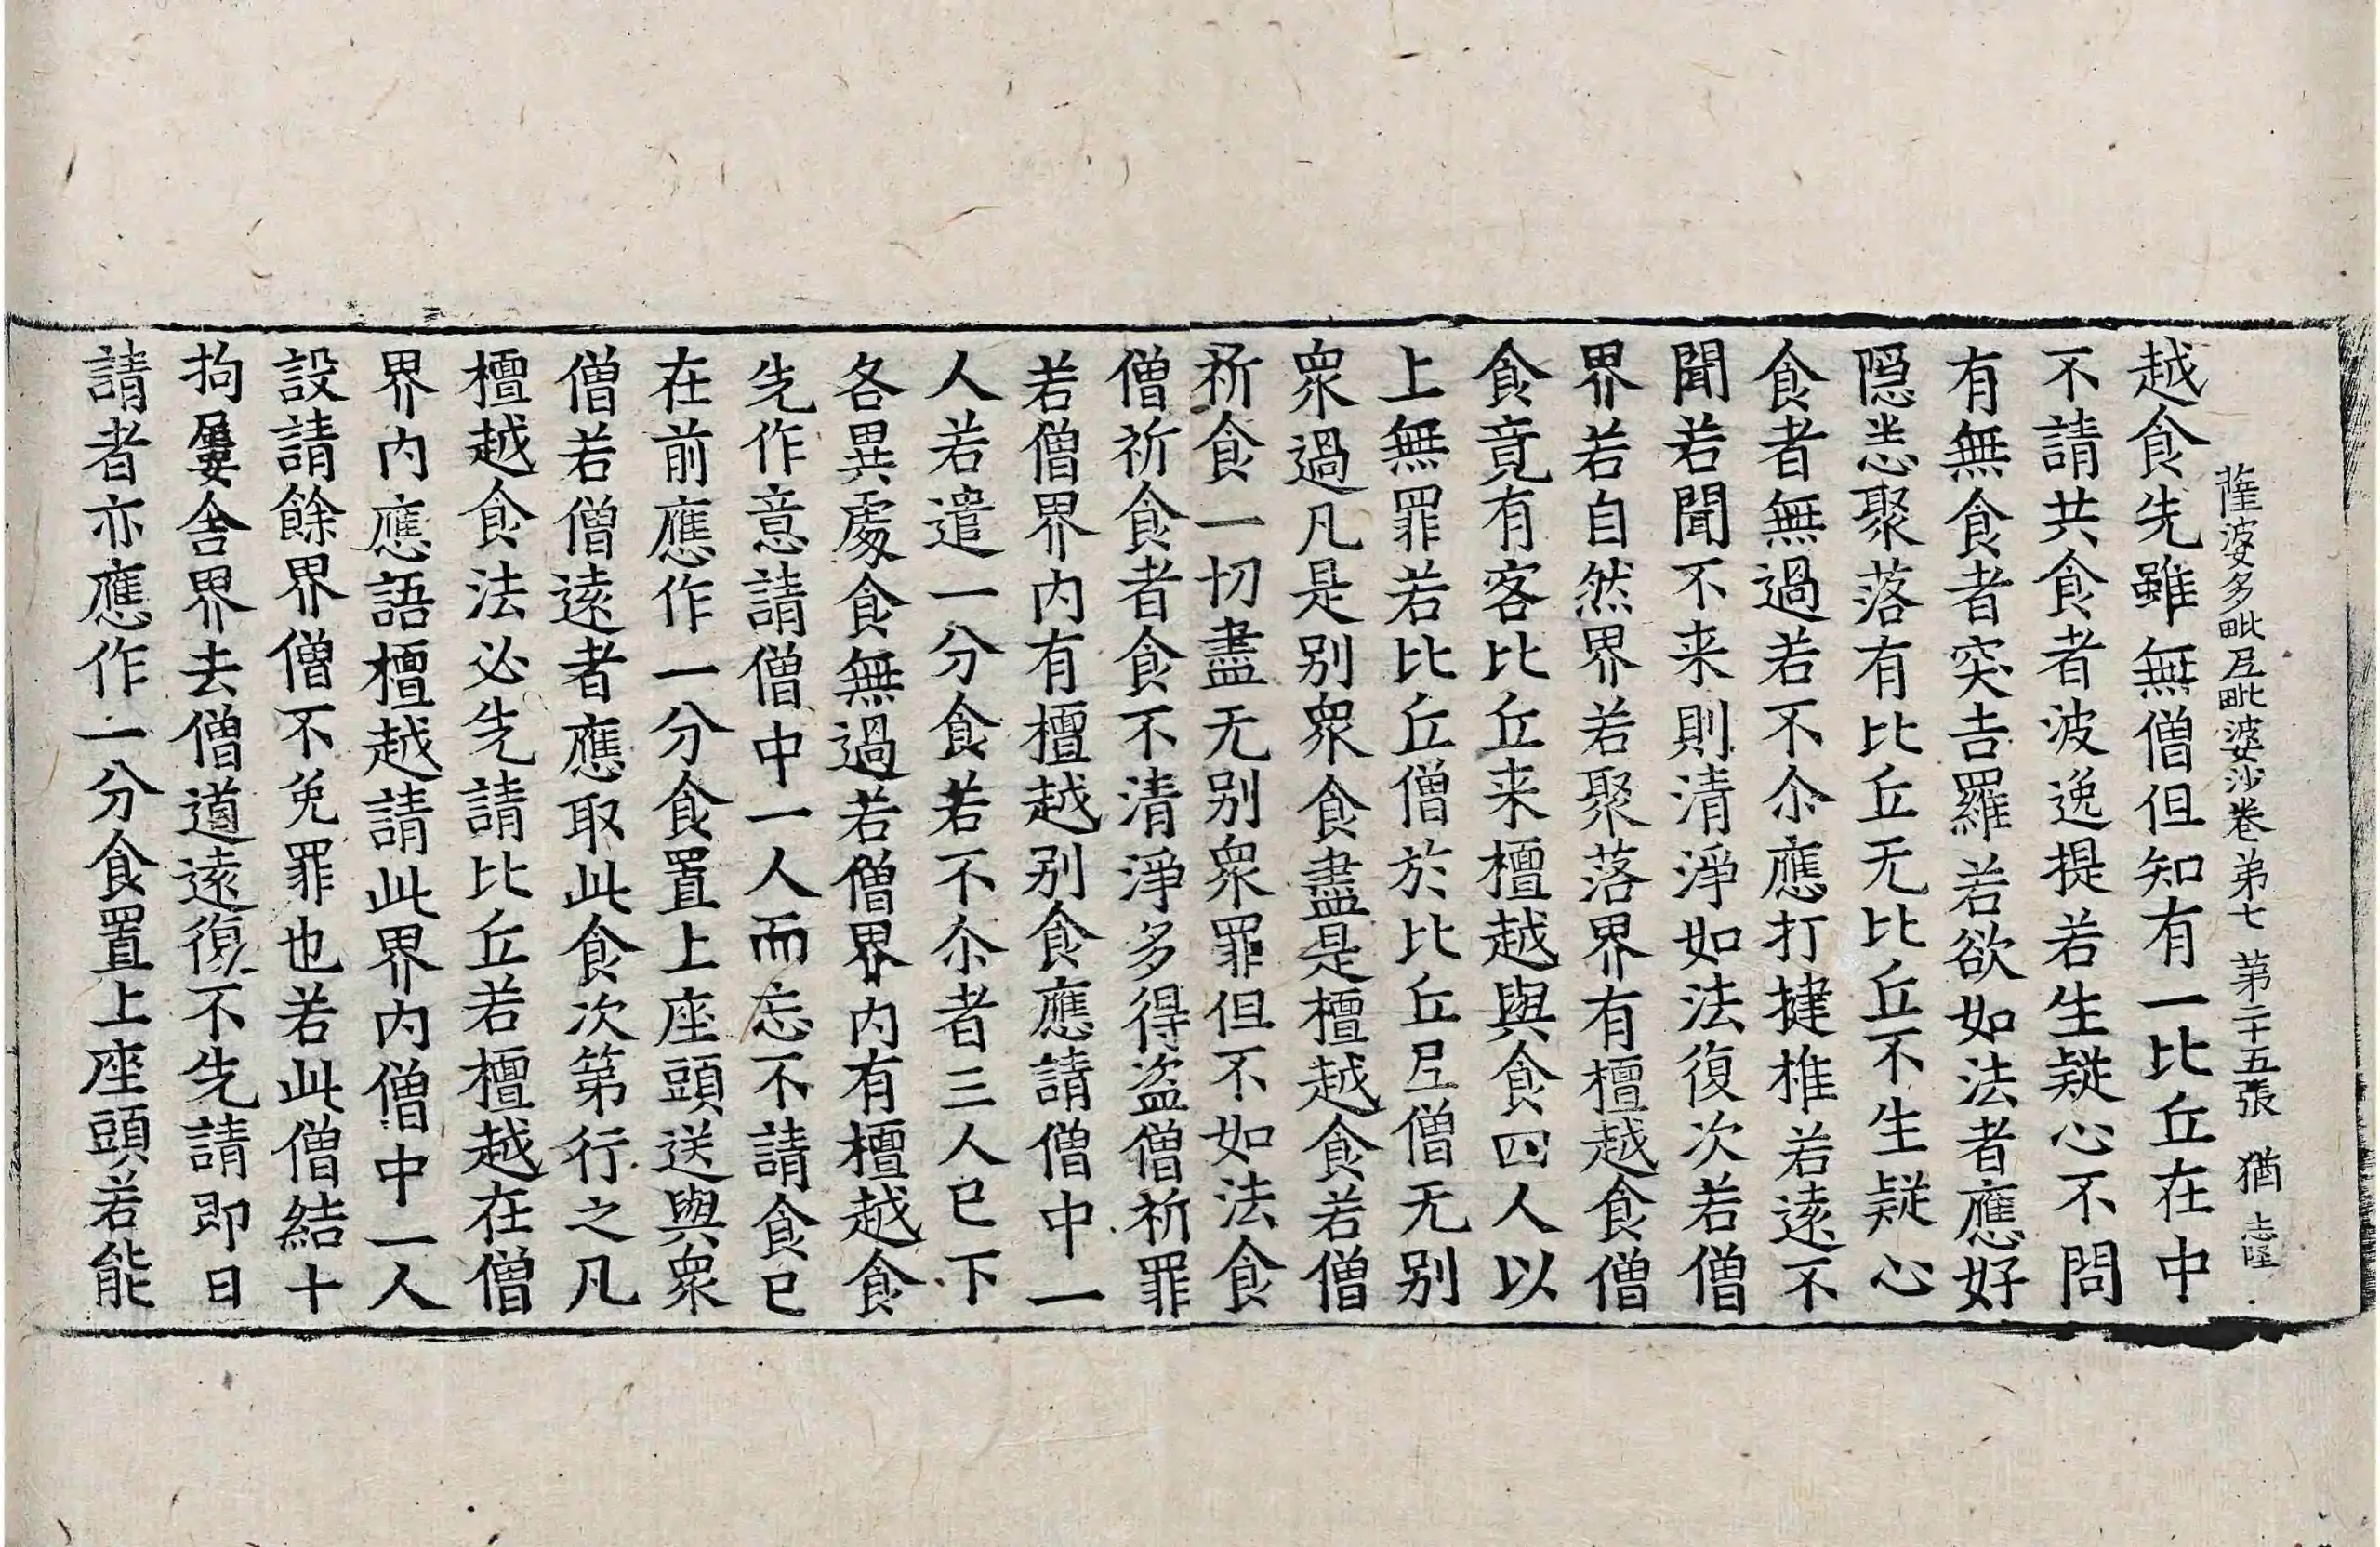 薩婆多毗尼毗婆沙卷第七 第二十五張 猶 志堅
越食先雖無僧但知有一比丘在中
不請共食者波逸提若生疑心不問
有無食者突吉羅若欲如法者應好
隱恙聚落有比丘无比丘不生疑心
食者無過若不尒應打揵椎若遠不
聞若聞不来則清淨如法復次若僧
界若自然界若聚落界有檀越食僧
食竟有客比丘来檀越與食四人以
上無罪若比丘僧於比丘尼僧无别
衆過凡是别衆食盡是檀越食若僧
祈食一切盡无别衆罪但不如法食
僧祈食者食不清淨多得盗僧祈罪
若僧界内有檀越别食應請僧中一
人若遣一分食若不尒者三人已下
各異處食無過若僧界内有檀越食
先作意請僧中一人而忘不請食已
在前應作一分食置上座頭送與衆
僧若僧遠者應取此食次第行之凡
檀越食法必先請比丘若檀越在僧
界内應語檀越請此界内僧中一人
設請餘界僧不免罪也若此僧結十
拘屢舍界去僧道遠復不先請即日
請者亦應作一分食置上座頭若能